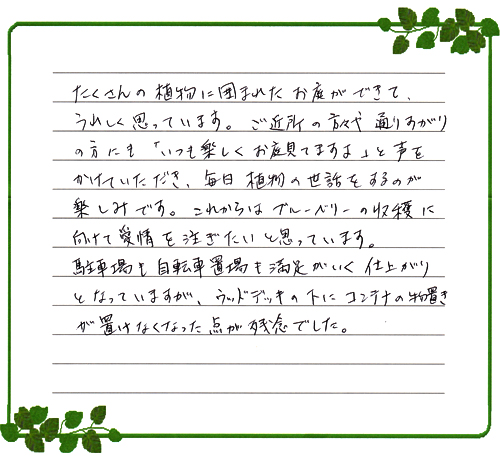 たくさんの植物に囲まれたお庭ができて、
うれしく思っています。ご近所の方々や通りすがり
の方にも「いつも楽しくお庭見てますよ」と声を
かけていただき、毎日植物の世話をするのが
楽しみです。これからはブルーベリーの収穫に
向けて愛情を注ぎたいと思っています。
駐車場も自転車置場も満足がいく仕上がり
となっていますが、ウッドデッキの下にコンテナの物置き
が置けなくなった点が残念でした。